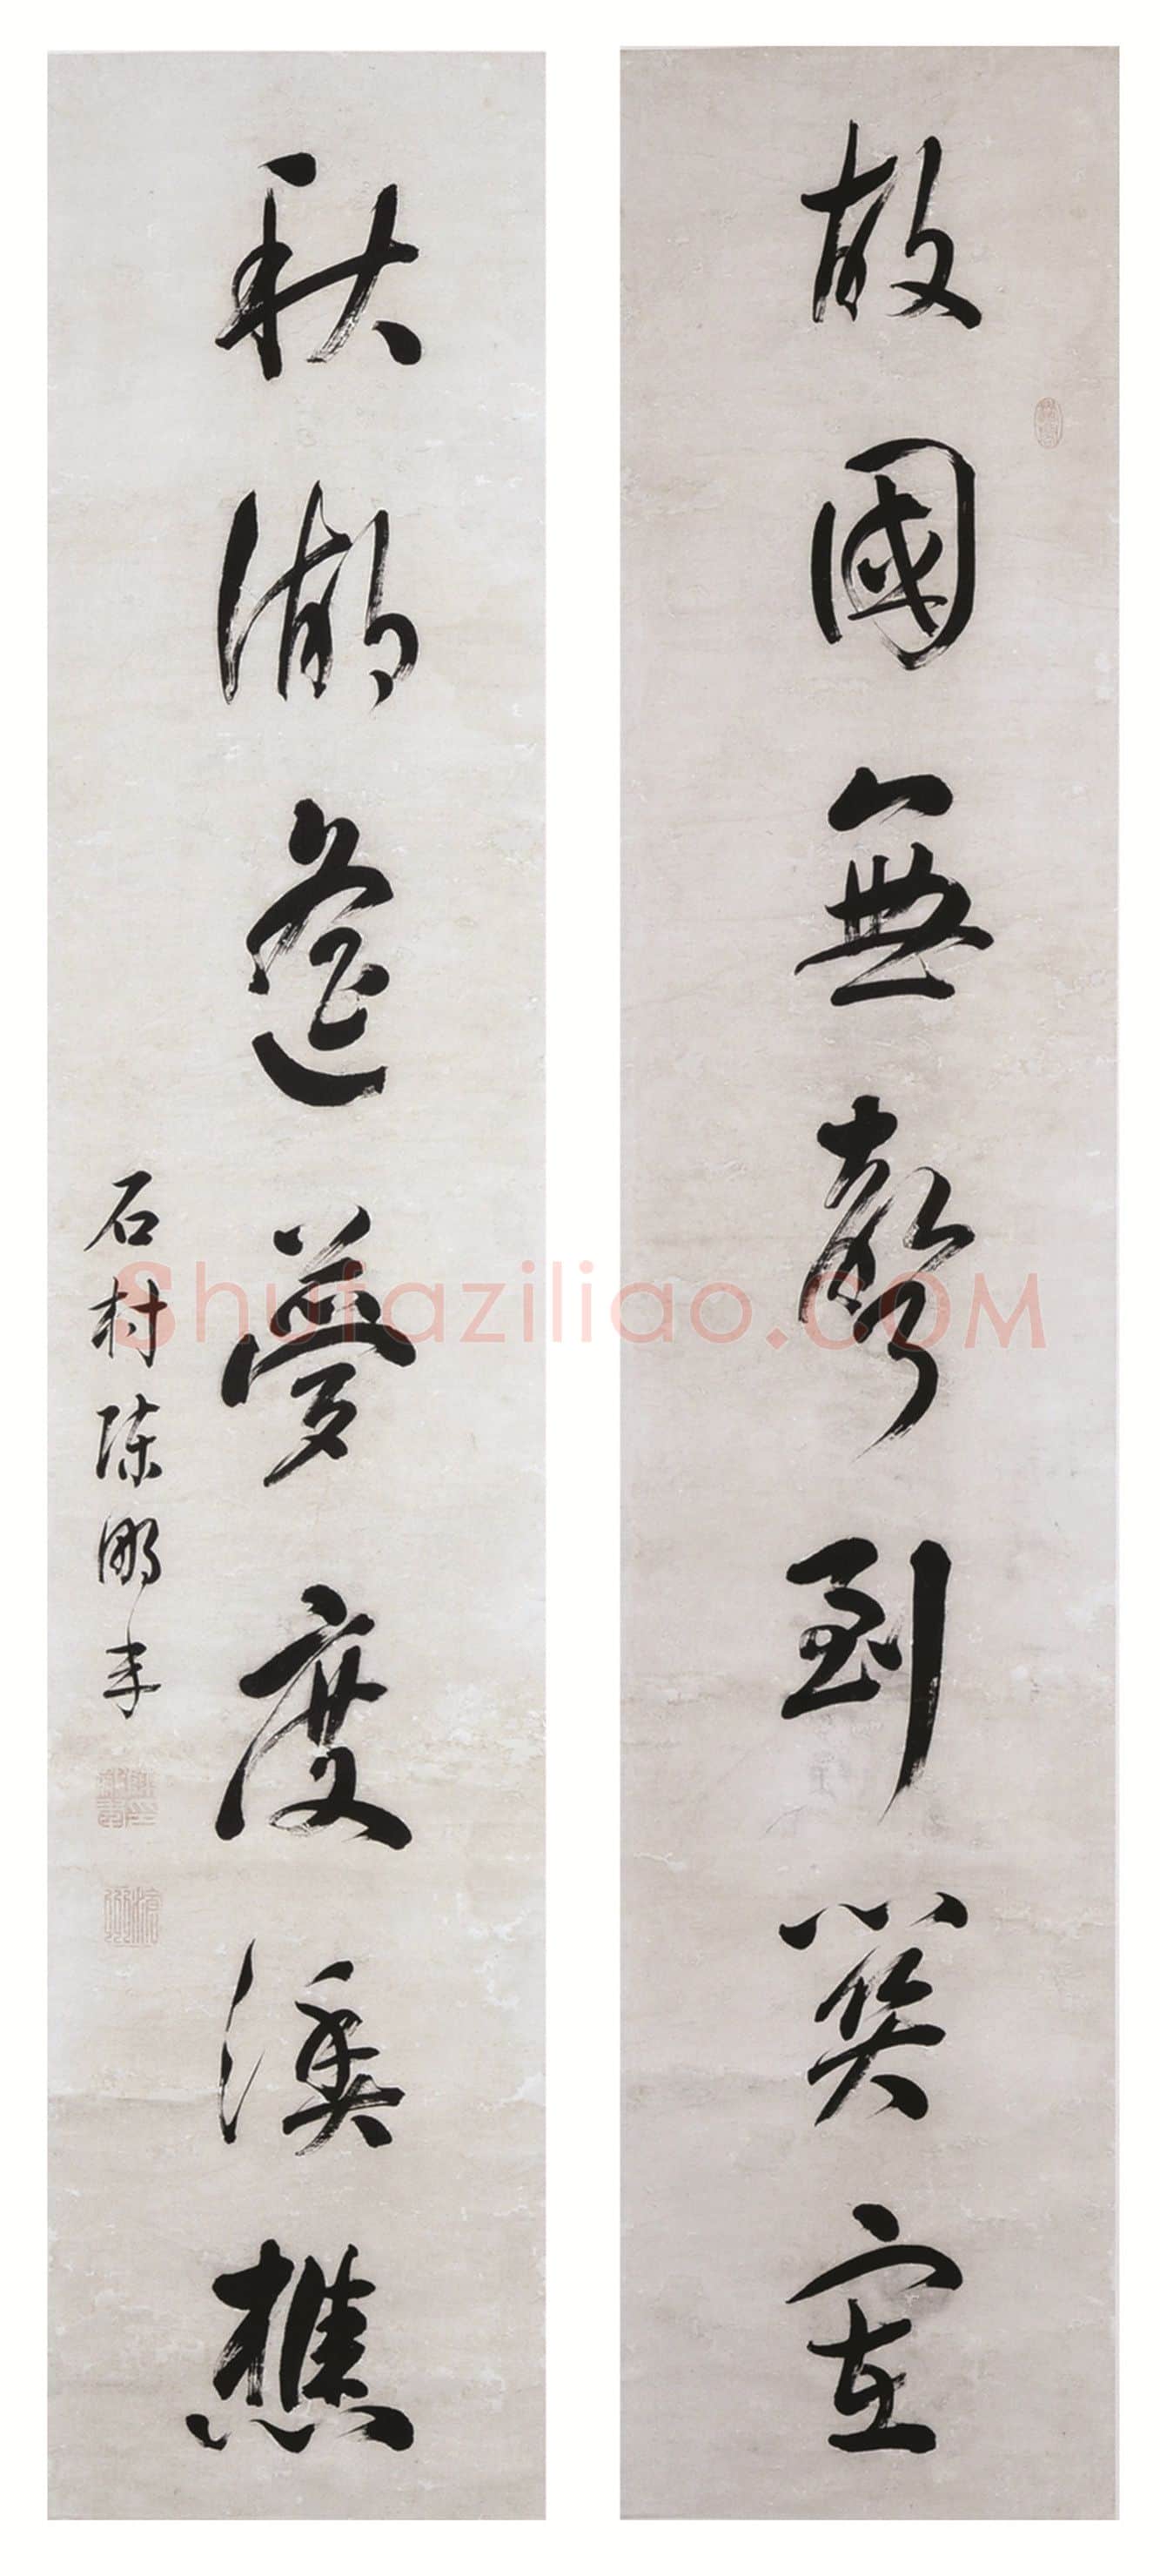 故國無聲到笑
秋遙夢度溪樵
石村陳鵬年
Shufaziliao.COM